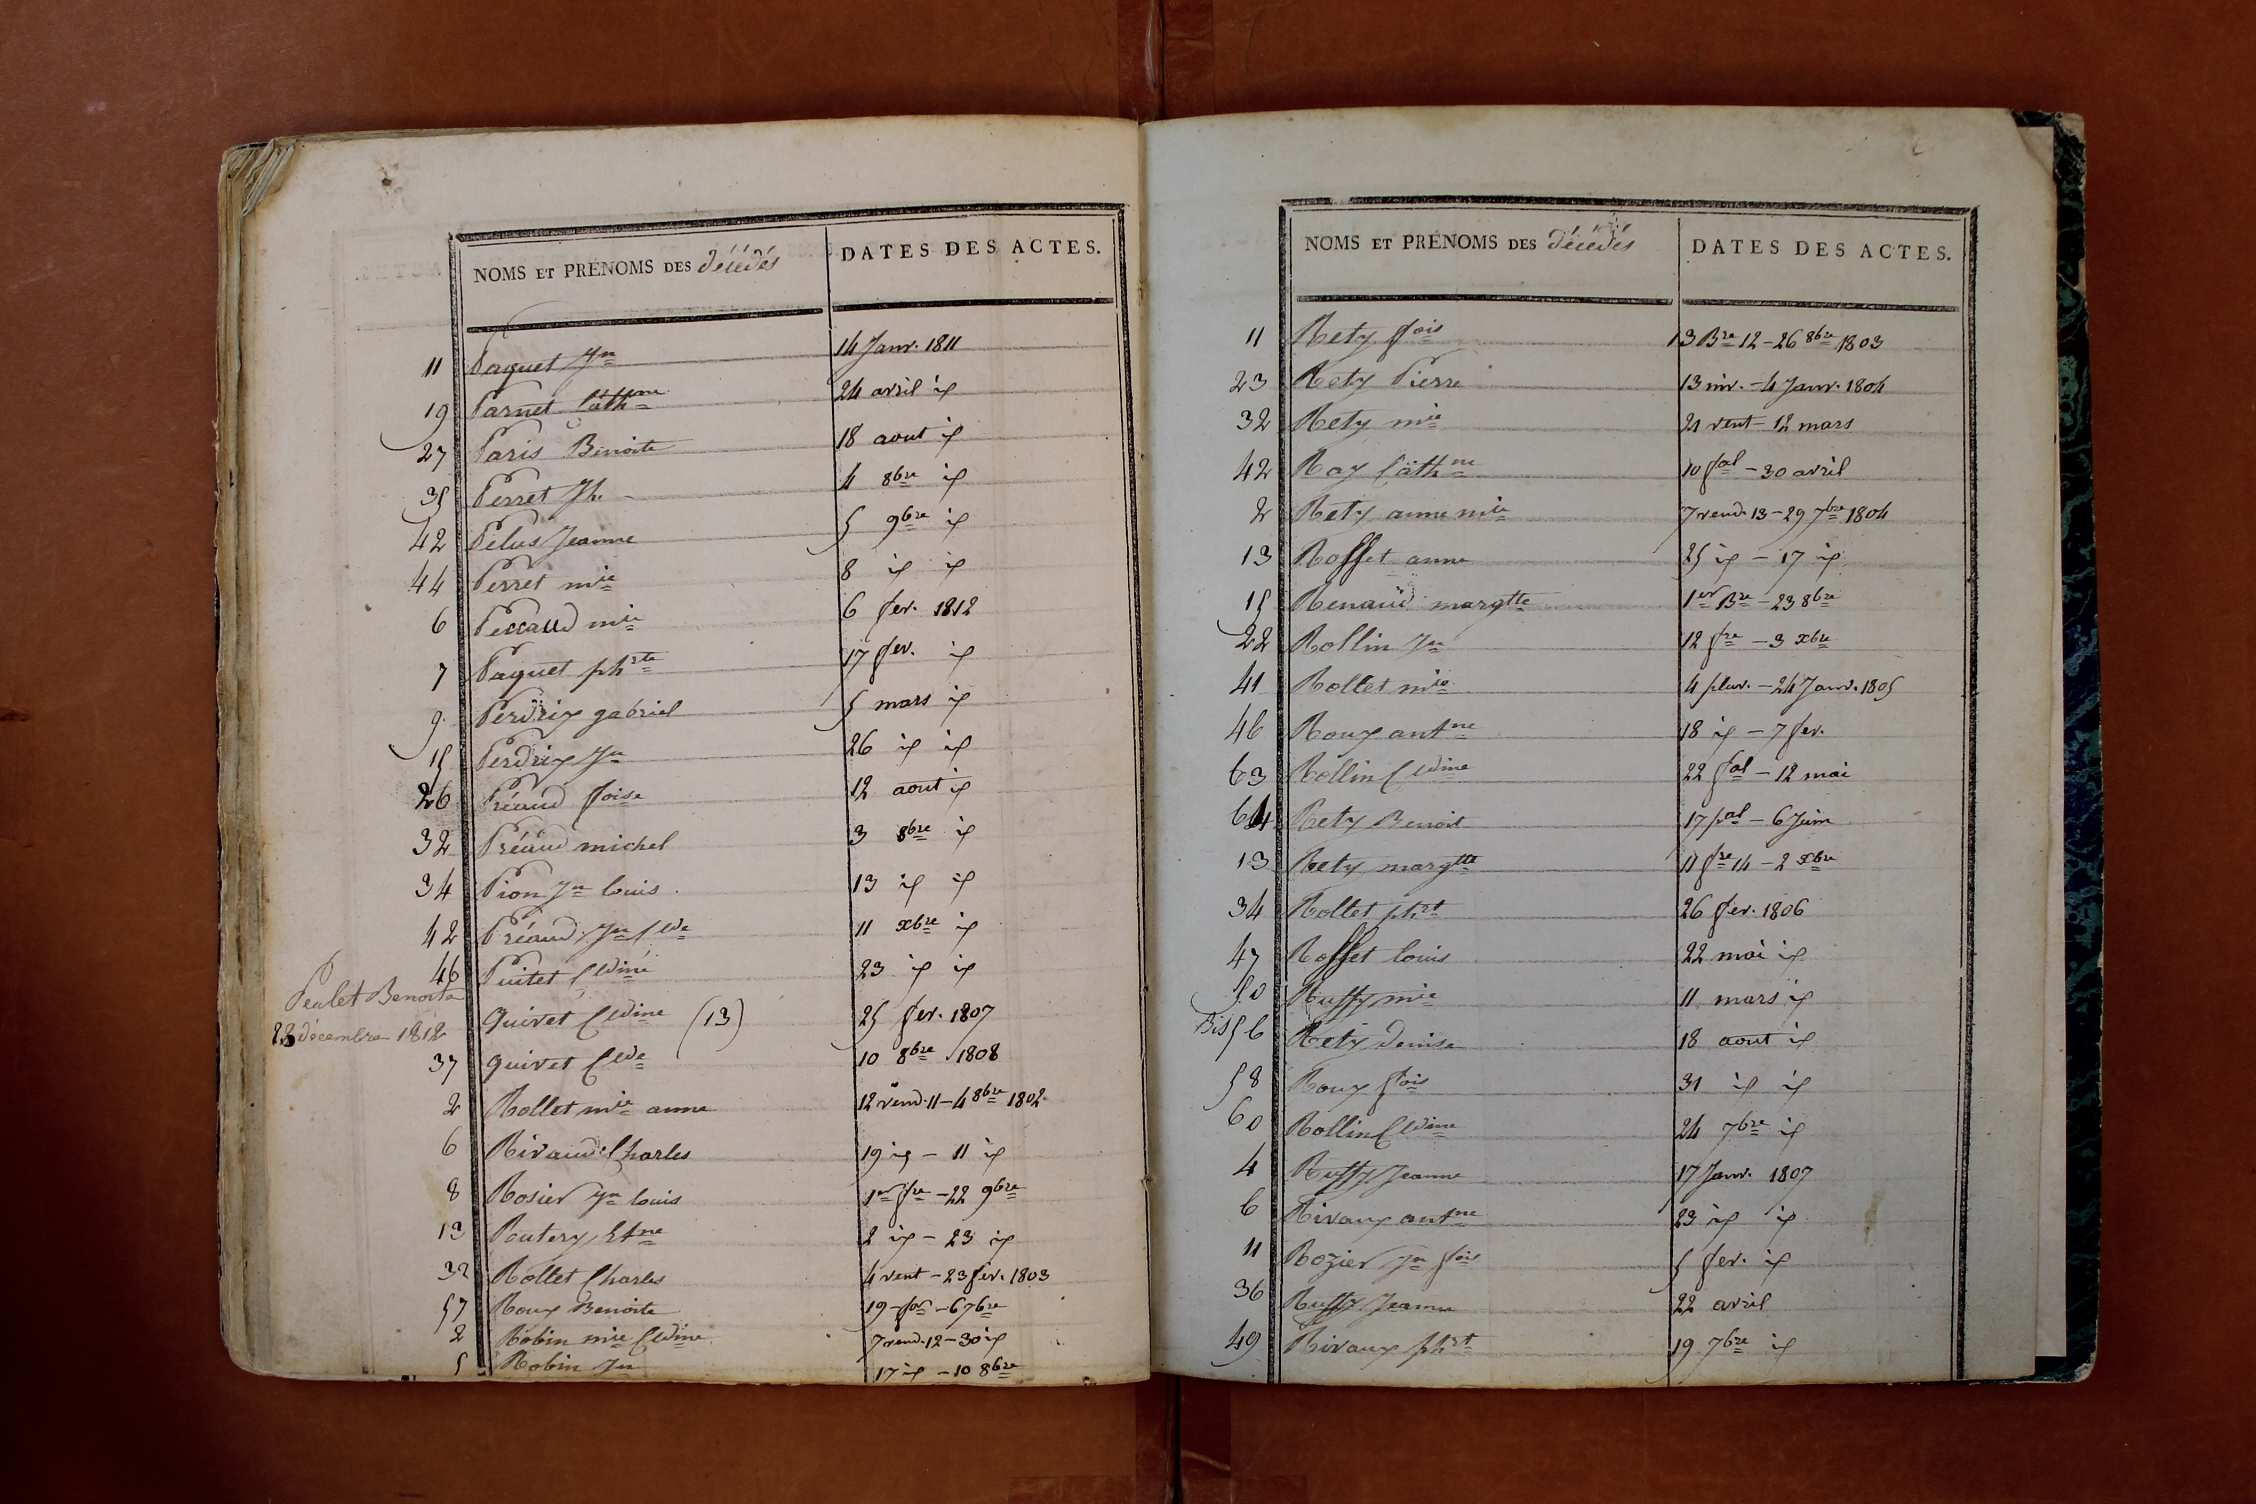 NOMS ET PRÉNOMS DES décédés DATES DES ACTES.
11 Paquet Jn 14 Janv. 1811
19 Parnet Cathne 24 avril id
27 Paris Benoite 18 aout id
35 Perret Jh. 4 8bre id
42 Pelus Jeanne 5 9bre id
44 Perret mie 8 id id
6 Peccaud mie 6 fev. 1812
7 Paquet phrte 17 fev. id
9. Perdrix gabriel 5 mars id
15 Perdrix Jn 26 id id
26 Préaud foise 12 aout id
32 Préaud michel 3 8bre id
34 Pion Jn louis. 13 id id
42 Préaud Jn Clde 11 xbre id
46 Puitet Cldine 23 id id
Peulet Benoite
23 décembre 1812
Quivet Cldine (13) 25 fev. 1807
37 quivet Clde 10 8bre 1808
2 Rollet mie anne 12 vend. 11 - 4 8bre 1802
6 Rivaud Charles 19 id - 11 id
8 Rosier Jn louis 1er fre - 22 9bre
13 Poutery Etne 2 id - 23 id
32 Rollet Charles 4 vent - 23 fév. 1803
57 Roux Benoite 19 - 6 7bre
2 Robin mie Cldine 7 vend. 12 - 30 id
5 Robin Jn 17 id - 10 8bre
NOMS ET PRÉNOMS DES décédés DATES DES ACTES.
11 Rety fois 13 Bre 12 - 26 8bre 1803
23 Rety Pierre 13 niv. - 4 Janv. 1804
32 Rety mie 21 vent - 12 mars
42 Ray Cathne 10 fal - 30 avril
2 Rety anne mie 7 vend. 13 - 29 7bre 1804
13 Rosset anne 25 id - 17 id
15 Renaud margtte 1er Bre - 23 8bre
22 Rollin Jn 12 fre - 3 xbre
41 Rollet mie 4 pluv. - 24 Janv. 1805
46 Roux antne 18 id - 7 fev.
63 Rollin Cldine 22 fal - 12 mai
64 Rety Benoit 17 pal - 6 Juin
13 Rety margtte 11 fre 14 - 2 xbre
34 Rollet phrt 26 fev. 1806
47 Rosset louis 22 mai id
50 Ruffy mie 11 mars id
Bis 56 Rety Denise 18 aout id
58 Roux fois 31 id id
60 Rollin Cldine 24 7bre id
4 Ruffy Jeanne 17 Janv. 1807
6 Rivaux antne 23 id id
11 Rozier Jn fois 5 fev. id
36 Ruffy Jeanne 22 avril
49 Rivaux phrt 19 7bre id